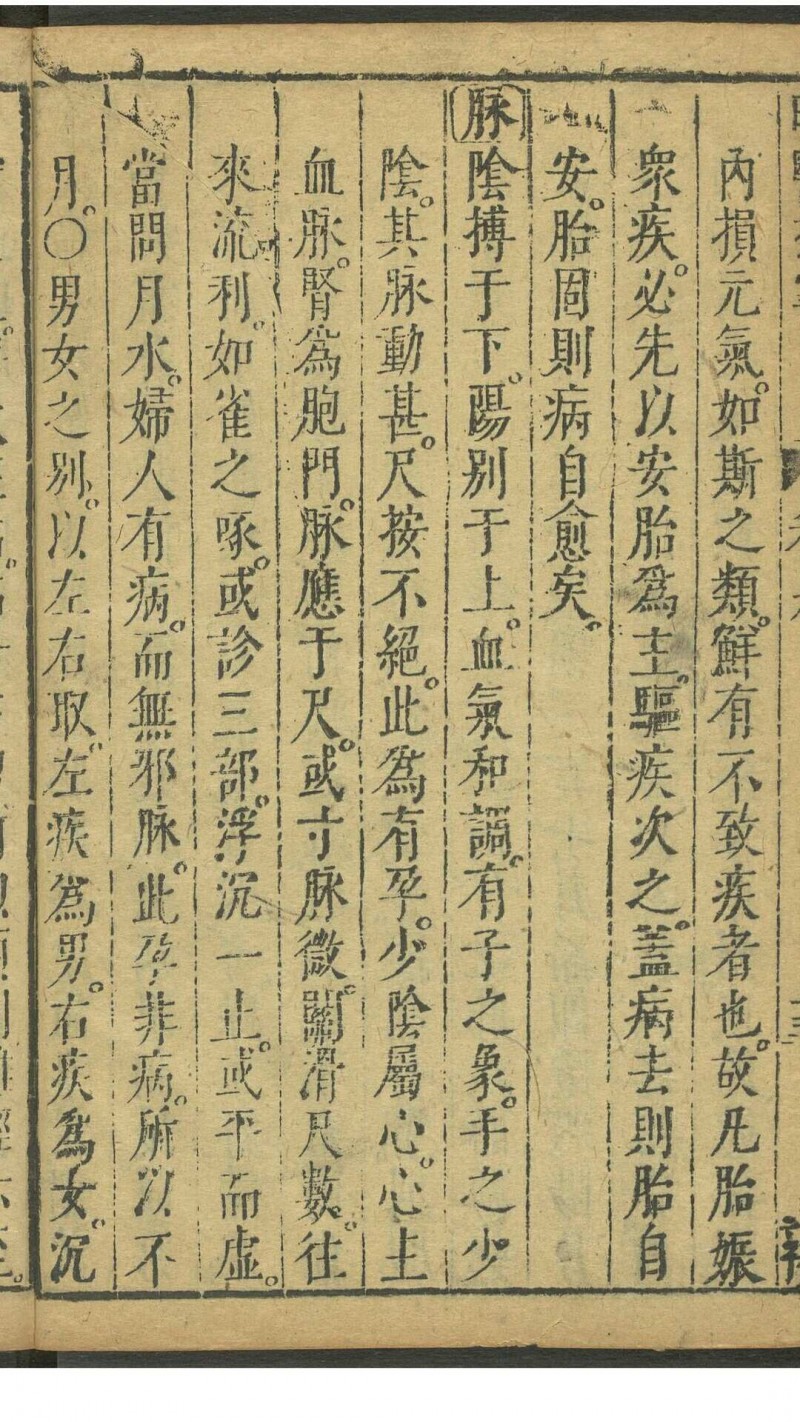 內損元氣。如斯之類。鮮有不致疾者也。故凡胎娠
衆疾。必先以安胎爲主。驅疾次之。蓋病去則胎自
安。胎固則病自愈矣。
脉陰搏于下。陽别于上。血氣和調。有子之象。手之少
陰。其脈動甚。尺按不絕。此爲有孕。少陰屬心。心主
血脈。腎爲胞門。脉應于尺。或寸脉微。關滑尺數。往
來流利。如雀之啄。或診三部。浮沉一止。或平而虛。
當問月水。婦人有病。而無邪脉。此孕非病。所以不
月。〇男女之别。以左右取。左疾爲男。右疾爲女。沉